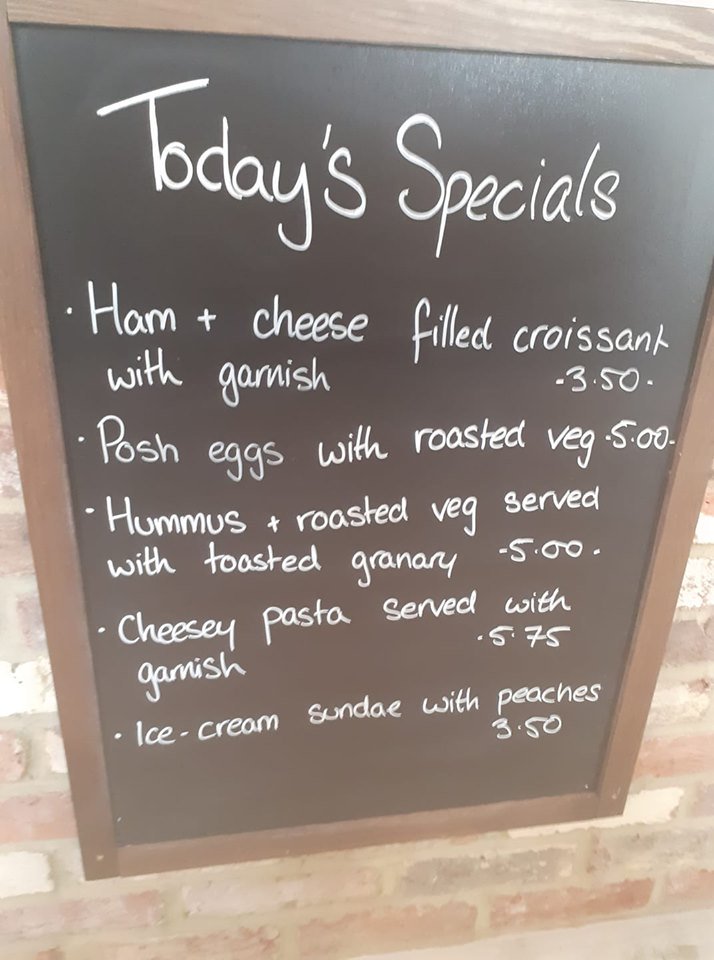 Today's Specials
· Ham + cheese filled croissant
with garnish -3.50-
· Posh eggs with roasted veg -5.00-
· Hummus + roasted veg served
with toasted granary -5.00-
· Cheesey pasta served with
garnish ·5.75
· Ice-cream sundae with peaches
3.50